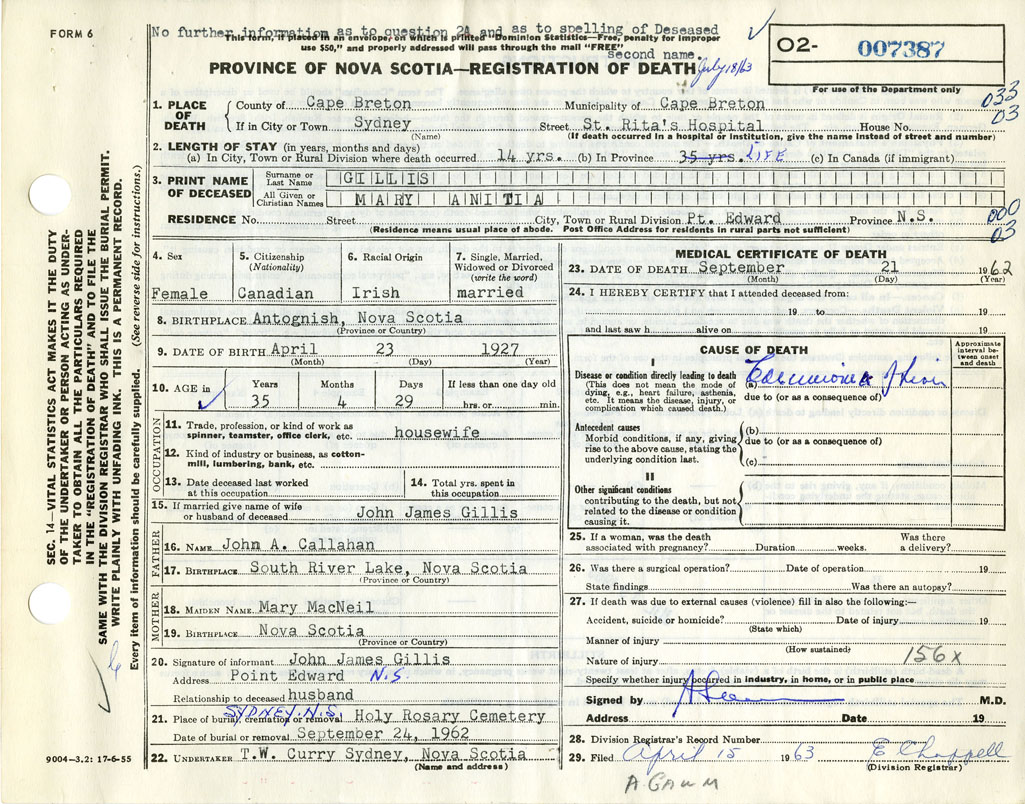 FORM 6
No further information as to question 2A and as to spelling of Deseased
second name.
This form, if placed in an envelope, on which is printed "Dominion Statistics—Free, penalty for improper
use $50," and properly addressed will pass through the mail "FREE"
PROVINCE OF NOVA SCOTIA—REGISTRATION OF DEATH
July 18/63
02- 007387
For use of the Department only
033
03
1. PLACE OF DEATH
County of Cape Breton Municipality of Cape Breton
If in City or Town Sydney Street St. Rita's Hospital House No.
(Name) (If death occurred in a hospital or institution, give the name instead of street and number)
2. LENGTH OF STAY (in years, months and days)
(a) In City, Town or Rural Division where death occurred 14 yrs. (b) In Province 35 yrs. LIFE (c) In Canada (if immigrant)
3. PRINT NAME OF DECEASED
Surname or Last Name GILLIS
All Given or Christian Names MARY ANITIA
RESIDENCE No. Street City, Town or Rural Division Pt. Edward Province N.S.
(Residence means usual place of abode. Post Office Address for residents in rural parts not sufficient)
000
03
4. Sex
Female
5. Citizenship (Nationality)
Canadian
6. Racial Origin
Irish
7. Single, Married, Widowed or Divorced (write the word)
married
8. BIRTHPLACE Antognish, Nova Scotia
(Province or Country)
9. DATE OF BIRTH April 23 1927
(Month) (Day) (Year)
10. AGE in Years Months Days If less than one day old
35 4 29 hrs. or min.
OCCUPATION
11. Trade, profession, or kind of work as spinner, teamster, office clerk, etc. housewife
12. Kind of industry or business, as cotton-mill, lumbering, bank, etc.
13. Date deceased last worked at this occupation
14. Total yrs. spent in this occupation
15. If married give name of wife or husband of deceased John James Gillis
FATHER
16. NAME John A. Callahan
17. BIRTHPLACE South River Lake, Nova Scotia
(Province or Country)
MOTHER
18. MAIDEN NAME Mary MacNeil
19. BIRTHPLACE Nova Scotia
(Province or Country)
20. Signature of informant John James Gillis
Address Point Edward N.S.
Relationship to deceased husband
SYDNEY. N.S.
21. Place of burial, cremation or removal Holy Rosary Cemetery
Date of burial or removal September 24, 1962
22. UNDERTAKER T.W. Curry Sydney, Nova Scotia
(Name and address)
MEDICAL CERTIFICATE OF DEATH
23. DATE OF DEATH September 21 1962
(Month) (Day) (Year)
24. I HEREBY CERTIFY that I attended deceased from:
19 to 19
and last saw h alive on 19
CAUSE OF DEATH
Approximate interval between onset and death
I
Disease or condition directly leading to death (a)
(This does not mean the mode of dying, e.g., heart failure, asthenia, etc. It means the disease, injury, or complication which caused death.)
due to (or as a consequence of)
Antecedent causes
Morbid conditions, if any, giving rise to the above cause, stating the underlying condition last.
(b)
due to (or as a consequence of)
(c)
II
Other significant conditions
contributing to the death, but not related to the disease or condition causing it.
25. If a woman, was the death associated with pregnancy? Duration weeks. Was there a delivery?
26. Was there a surgical operation? Date of operation 19
State findings Was there an autopsy?
27. If death was due to external causes (violence) fill in also the following:—
Accident, suicide or homicide? Date of injury 19
(State which)
Manner of injury
(How sustained)
Nature of injury 156x
Specify whether injury occurred in industry, in home, or in public place
Signed by M.D.
Address Date 19
28. Division Registrar's Record Number
29. Filed April 15 1963 E Chappell
(Division Registrar)
SEC. 14—VITAL STATISTICS ACT MAKES IT THE DUTY
OF THE UNDERTAKER OR PERSON ACTING AS UNDER-
TAKER TO OBTAIN ALL THE PARTICULARS REQUIRED
IN THE "REGISTRATION OF DEATH" AND TO FILE THE
SAME WITH THE DIVISION REGISTRAR WHO SHALL ISSUE THE BURIAL PERMIT.
WRITE PLAINLY WITH UNFADING INK. THIS IS A PERMANENT RECORD.
Every item of information should be carefully supplied. (See reverse side for instructions.)
9004—3.2: 17-6-55